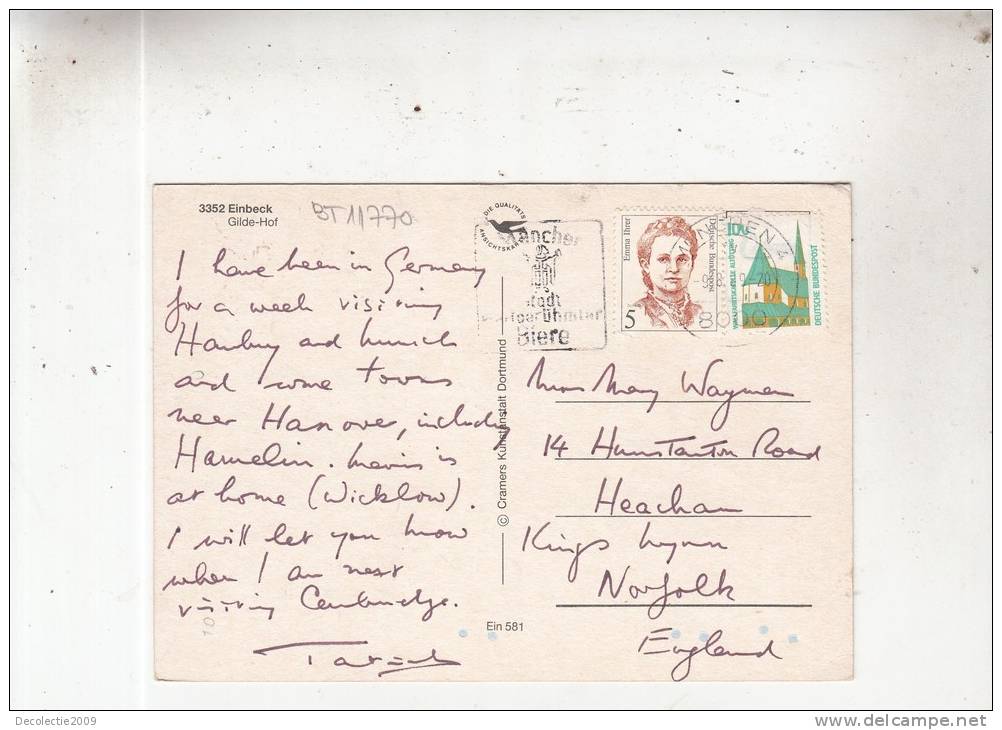 3352 Einbeck
Gilde-Hof
BT11770
DIE QUALITÄTS
ANSICHTSKARTE
Stadt
Biere
Emma Ihrer
Deutsche Bundespost
5
MÜNCHEN
8000
100
DEUTSCHE BUNDESPOST
I have been in Germany
for a week visiting
Hamburg and Munich
and some towns
near Hanover, including
Hamelin. is
at home (Wicklow).
I will let you know
when I am next
visiting Cambridge.
© Cramers Kunstanstalt Dortmund
May Wayman
14 Hunstanton Road
Heacham
Kings Lynn
Norfolk
England
Ein 581
10
Decolectie2009
delcampe.net